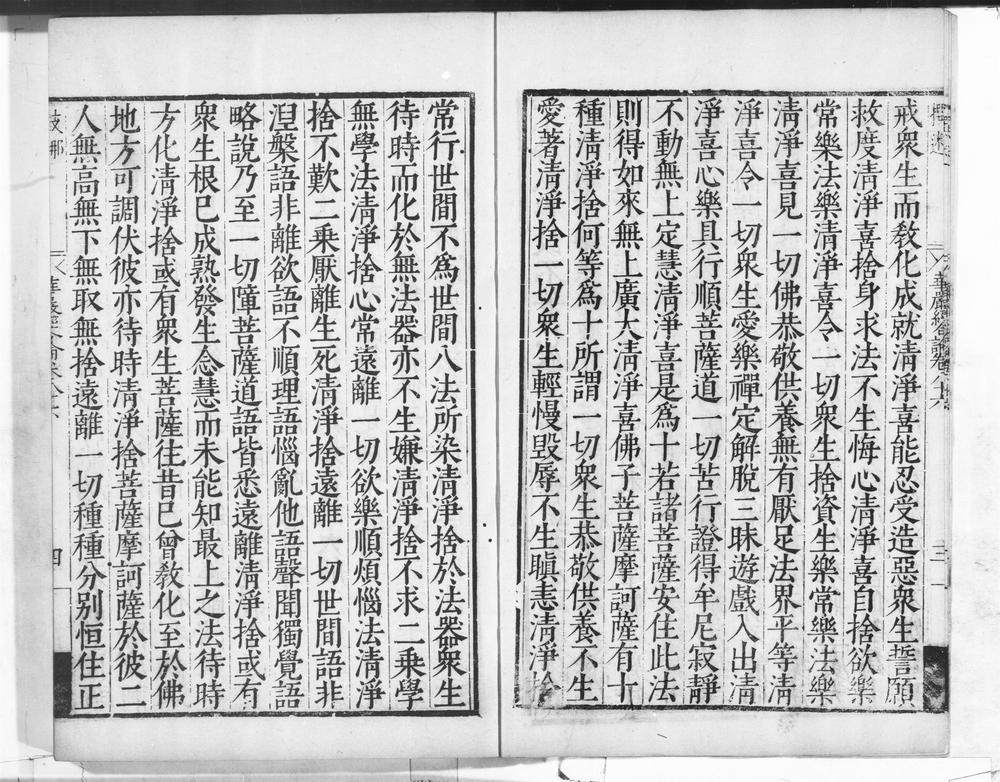 戒衆生而敎化成就淸淨喜能忍受造惡衆生誓願
救度淸淨喜捨身求法不生悔心淸淨喜自捨欲樂
常樂法樂淸淨喜令一切衆生捨資生樂常樂法樂
淸淨喜見一切佛恭敬供養無有厭足法界平等淸
淨喜令一切衆生愛樂禪定解脫三昧遊戲入出淸
淨喜心樂具行順菩薩道一切苦行證得牟尼寂靜
不動無上定慧淸淨喜是爲十若諸菩薩安住此法
則得如來無上廣大淸淨喜佛子菩薩摩訶薩有十
種淸淨捨何等爲十所謂一切衆生恭敬供養不生
愛著淸淨捨一切衆生輕慢毀辱不生瞋恚淸淨捨
常行世間不爲世間八法所染淸淨捨於法器衆生
待時而化於無法器亦不生嫌淸淨捨不求二乘學
無學法淸淨捨心常遠離一切欲樂順煩惱法淸淨
捨不歎二乘厭離生死淸淨捨遠離一切世間語非
涅槃語非離欲語不順理語惱亂他語聲聞獨覺語
略說乃至一切障菩薩道語皆悉遠離淸淨捨或有
衆生根已成熟發生念慧而未能知最上之法待時
方化淸淨捨或有衆生菩薩往昔已曾敎化至於佛
地方可調伏彼亦待時淸淨捨菩薩摩訶薩於彼二
人無高無下無取無捨遠離一切種種分別恒住正
四